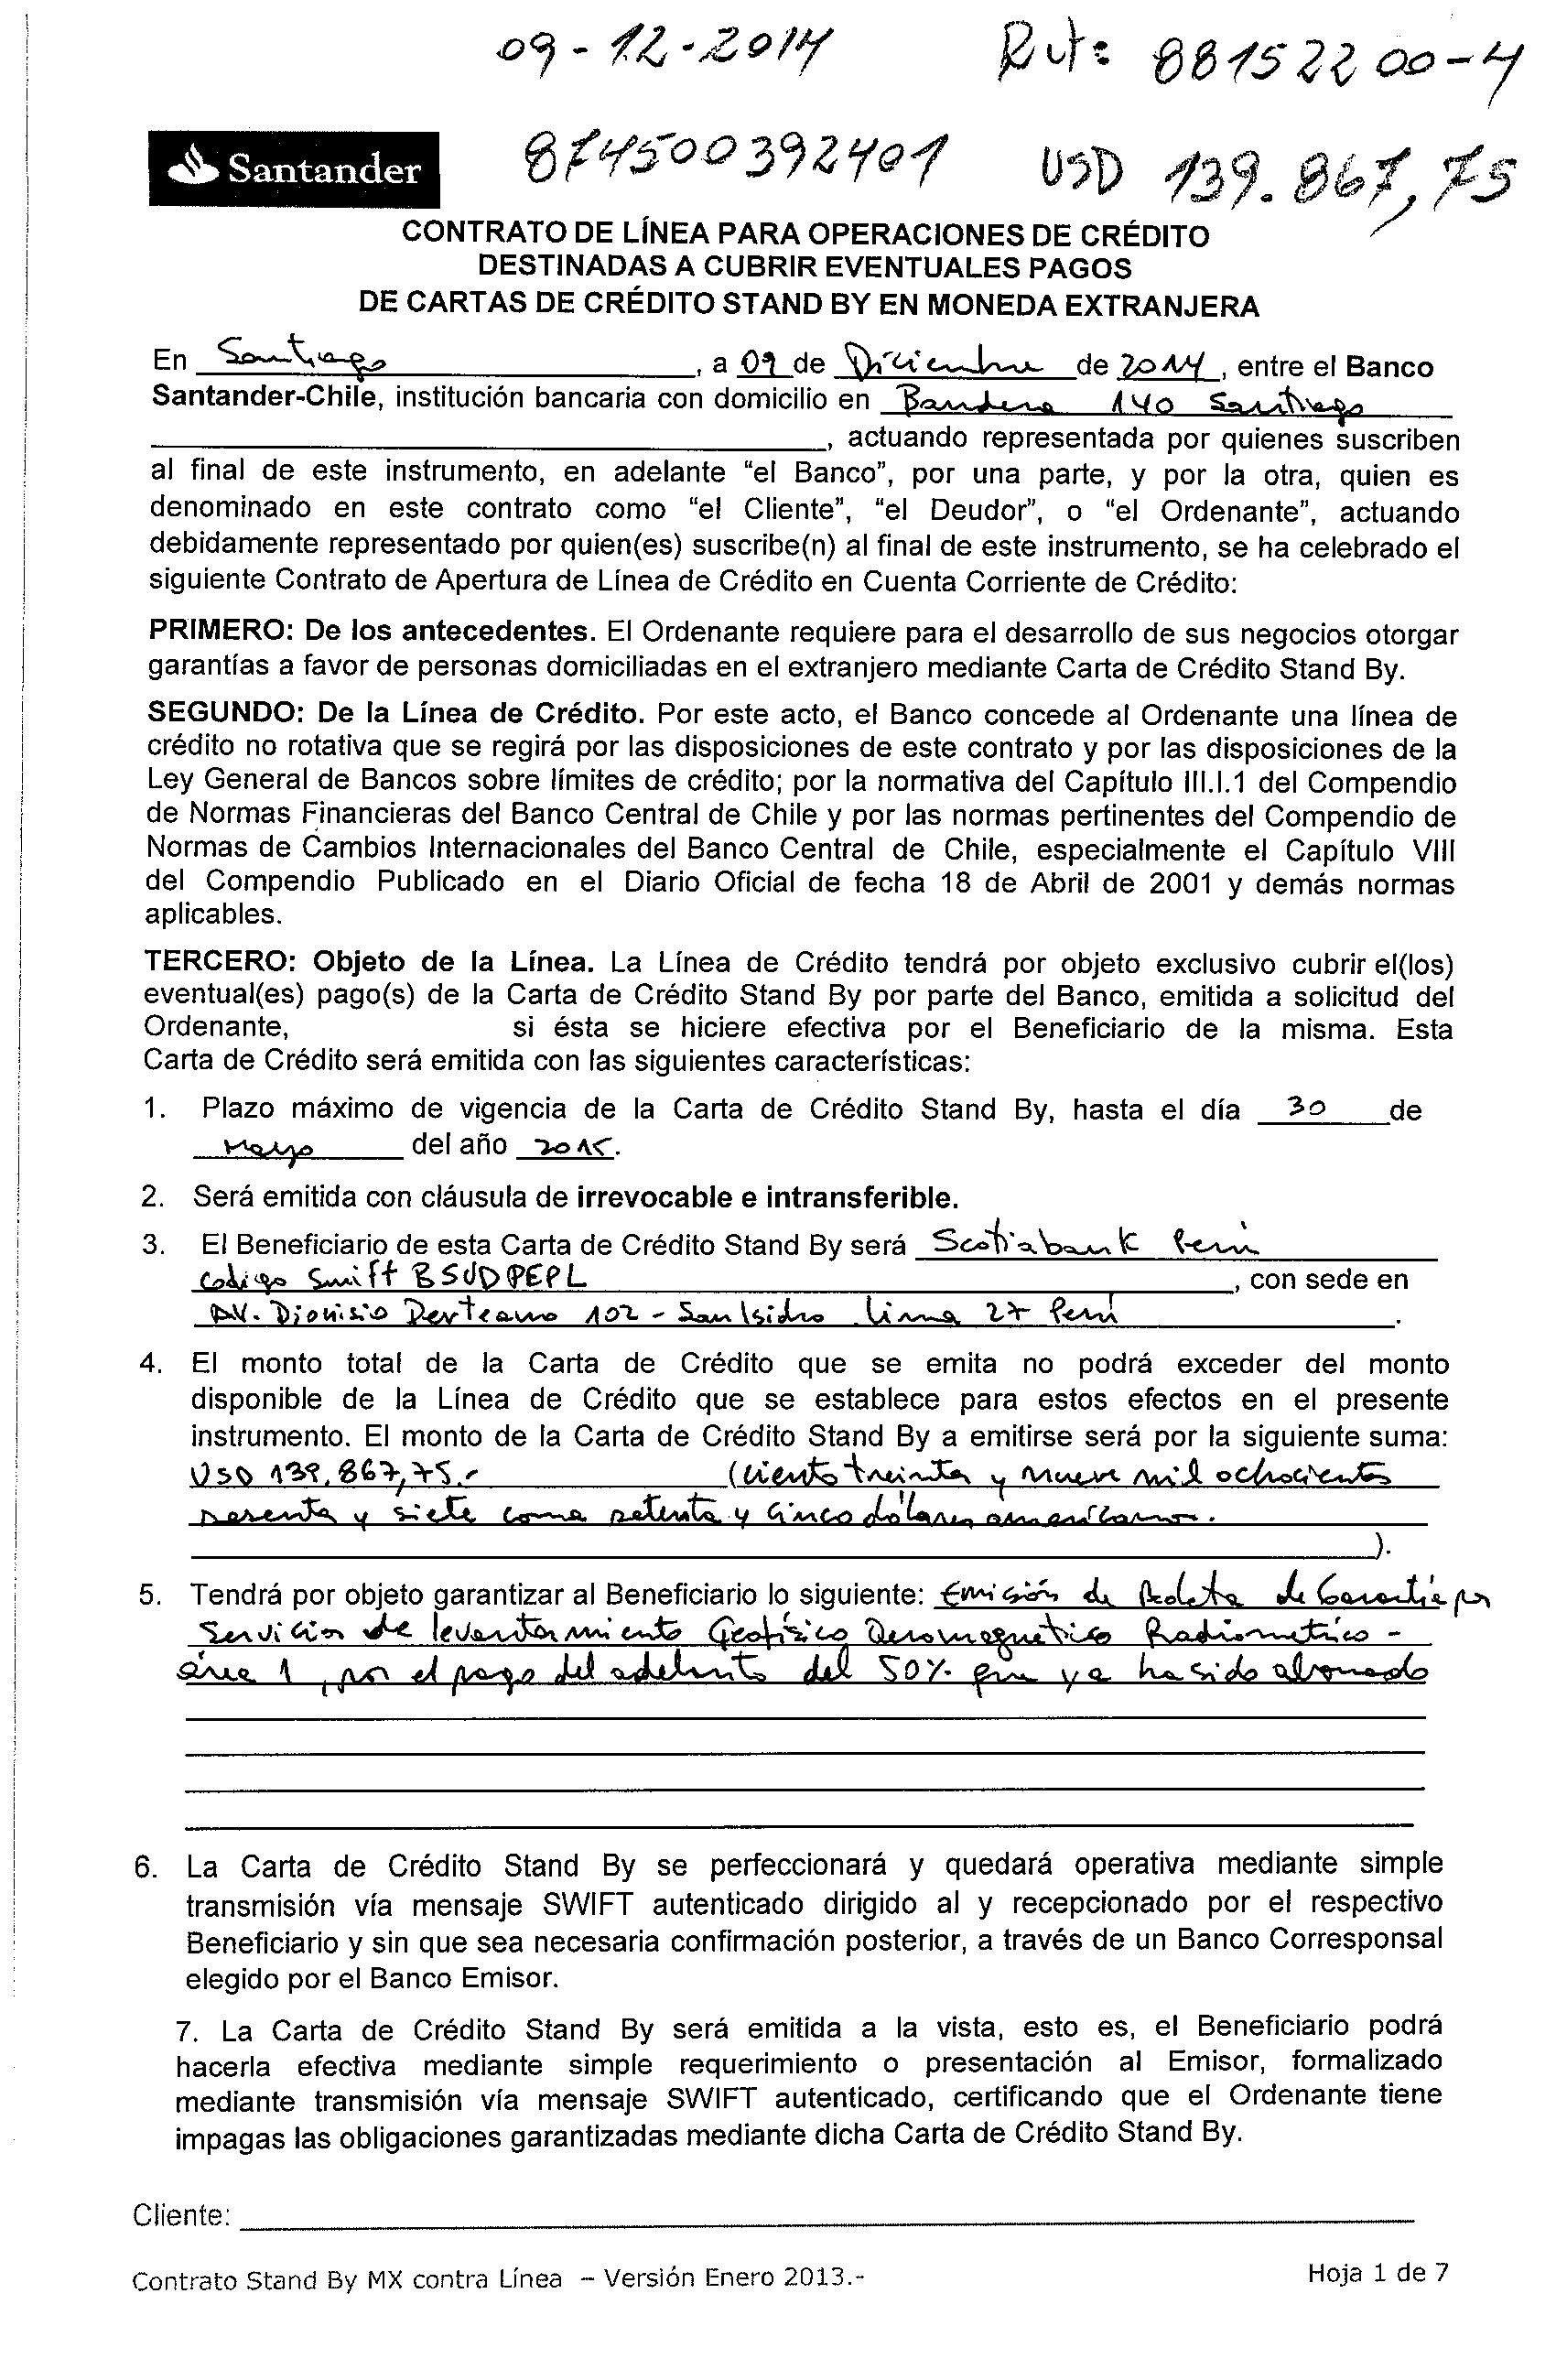 09-12-2014 Rut: 88152200-4
Santander 874500392401 USD 139.867,75
CONTRATO DE LÍNEA PARA OPERACIONES DE CRÉDITO
DESTINADAS A CUBRIR EVENTUALES PAGOS
DE CARTAS DE CRÉDITO STAND BY EN MONEDA EXTRANJERA
En Santiago, a 09 de Diciembre de 2014, entre el Banco
Santander-Chile, institución bancaria con domicilio en Bandera 140 Santiago
, actuando representada por quienes suscriben
al final de este instrumento, en adelante “el Banco”, por una parte, y por la otra, quien es
denominado en este contrato como “el Cliente”, “el Deudor”, o “el Ordenante”, actuando
debidamente representado por quien(es) suscribe(n) al final de este instrumento, se ha celebrado el
siguiente Contrato de Apertura de Línea de Crédito en Cuenta Corriente de Crédito:
PRIMERO: De los antecedentes. El Ordenante requiere para el desarrollo de sus negocios otorgar
garantías a favor de personas domiciliadas en el extranjero mediante Carta de Crédito Stand By.
SEGUNDO: De la Línea de Crédito. Por este acto, el Banco concede al Ordenante una línea de
crédito no rotativa que se regirá por las disposiciones de este contrato y por las disposiciones de la
Ley General de Bancos sobre límites de crédito; por la normativa del Capítulo III.I.1 del Compendio
de Normas Financieras del Banco Central de Chile y por las normas pertinentes del Compendio de
Normas de Cambios Internacionales del Banco Central de Chile, especialmente el Capítulo VIII
del Compendio Publicado en el Diario Oficial de fecha 18 de Abril de 2001 y demás normas
aplicables.
TERCERO: Objeto de la Línea. La Línea de Crédito tendrá por objeto exclusivo cubrir el(los)
eventual(es) pago(s) de la Carta de Crédito Stand By por parte del Banco, emitida a solicitud del
Ordenante, si ésta se hiciere efectiva por el Beneficiario de la misma. Esta
Carta de Crédito será emitida con las siguientes características:
1. Plazo máximo de vigencia de la Carta de Crédito Stand By, hasta el día 30 de
Mayo del año 2015.
2. Será emitida con cláusula de irrevocable e intransferible.
3. El Beneficiario de esta Carta de Crédito Stand By será Scotiabank Perú
Codigo Swift BSUDPEPL, con sede en
AV. Dionisio Derteano 102 - San Isidro Lima 27 Perú.
4. El monto total de la Carta de Crédito que se emita no podrá exceder del monto
disponible de la Línea de Crédito que se establece para estos efectos en el presente
instrumento. El monto de la Carta de Crédito Stand By a emitirse será por la siguiente suma:
USD 139.867,75.- (Ciento treinta y nueve mil ochocientos
sesenta y siete coma setenta y cinco dólares americanos.
).
5. Tendrá por objeto garantizar al Beneficiario lo siguiente: Emisión de Boleta de Garantía por
Servicios de levantamiento Geofísico Aeromagnético Radiometrico -
área 1, por el pago del adelanto del 50% que ya ha sido abonado
6. La Carta de Crédito Stand By se perfeccionará y quedará operativa mediante simple
transmisión vía mensaje SWIFT autenticado dirigido al y recepcionado por el respectivo
Beneficiario y sin que sea necesaria confirmación posterior, a través de un Banco Corresponsal
elegido por el Banco Emisor.
7. La Carta de Crédito Stand By será emitida a la vista, esto es, el Beneficiario podrá
hacerla efectiva mediante simple requerimiento o presentación al Emisor, formalizado
mediante transmisión vía mensaje SWIFT autenticado, certificando que el Ordenante tiene
impagas las obligaciones garantizadas mediante dicha Carta de Crédito Stand By.
Cliente:
Contrato Stand By MX contra Línea – Versión Enero 2013.- Hoja 1 de 7